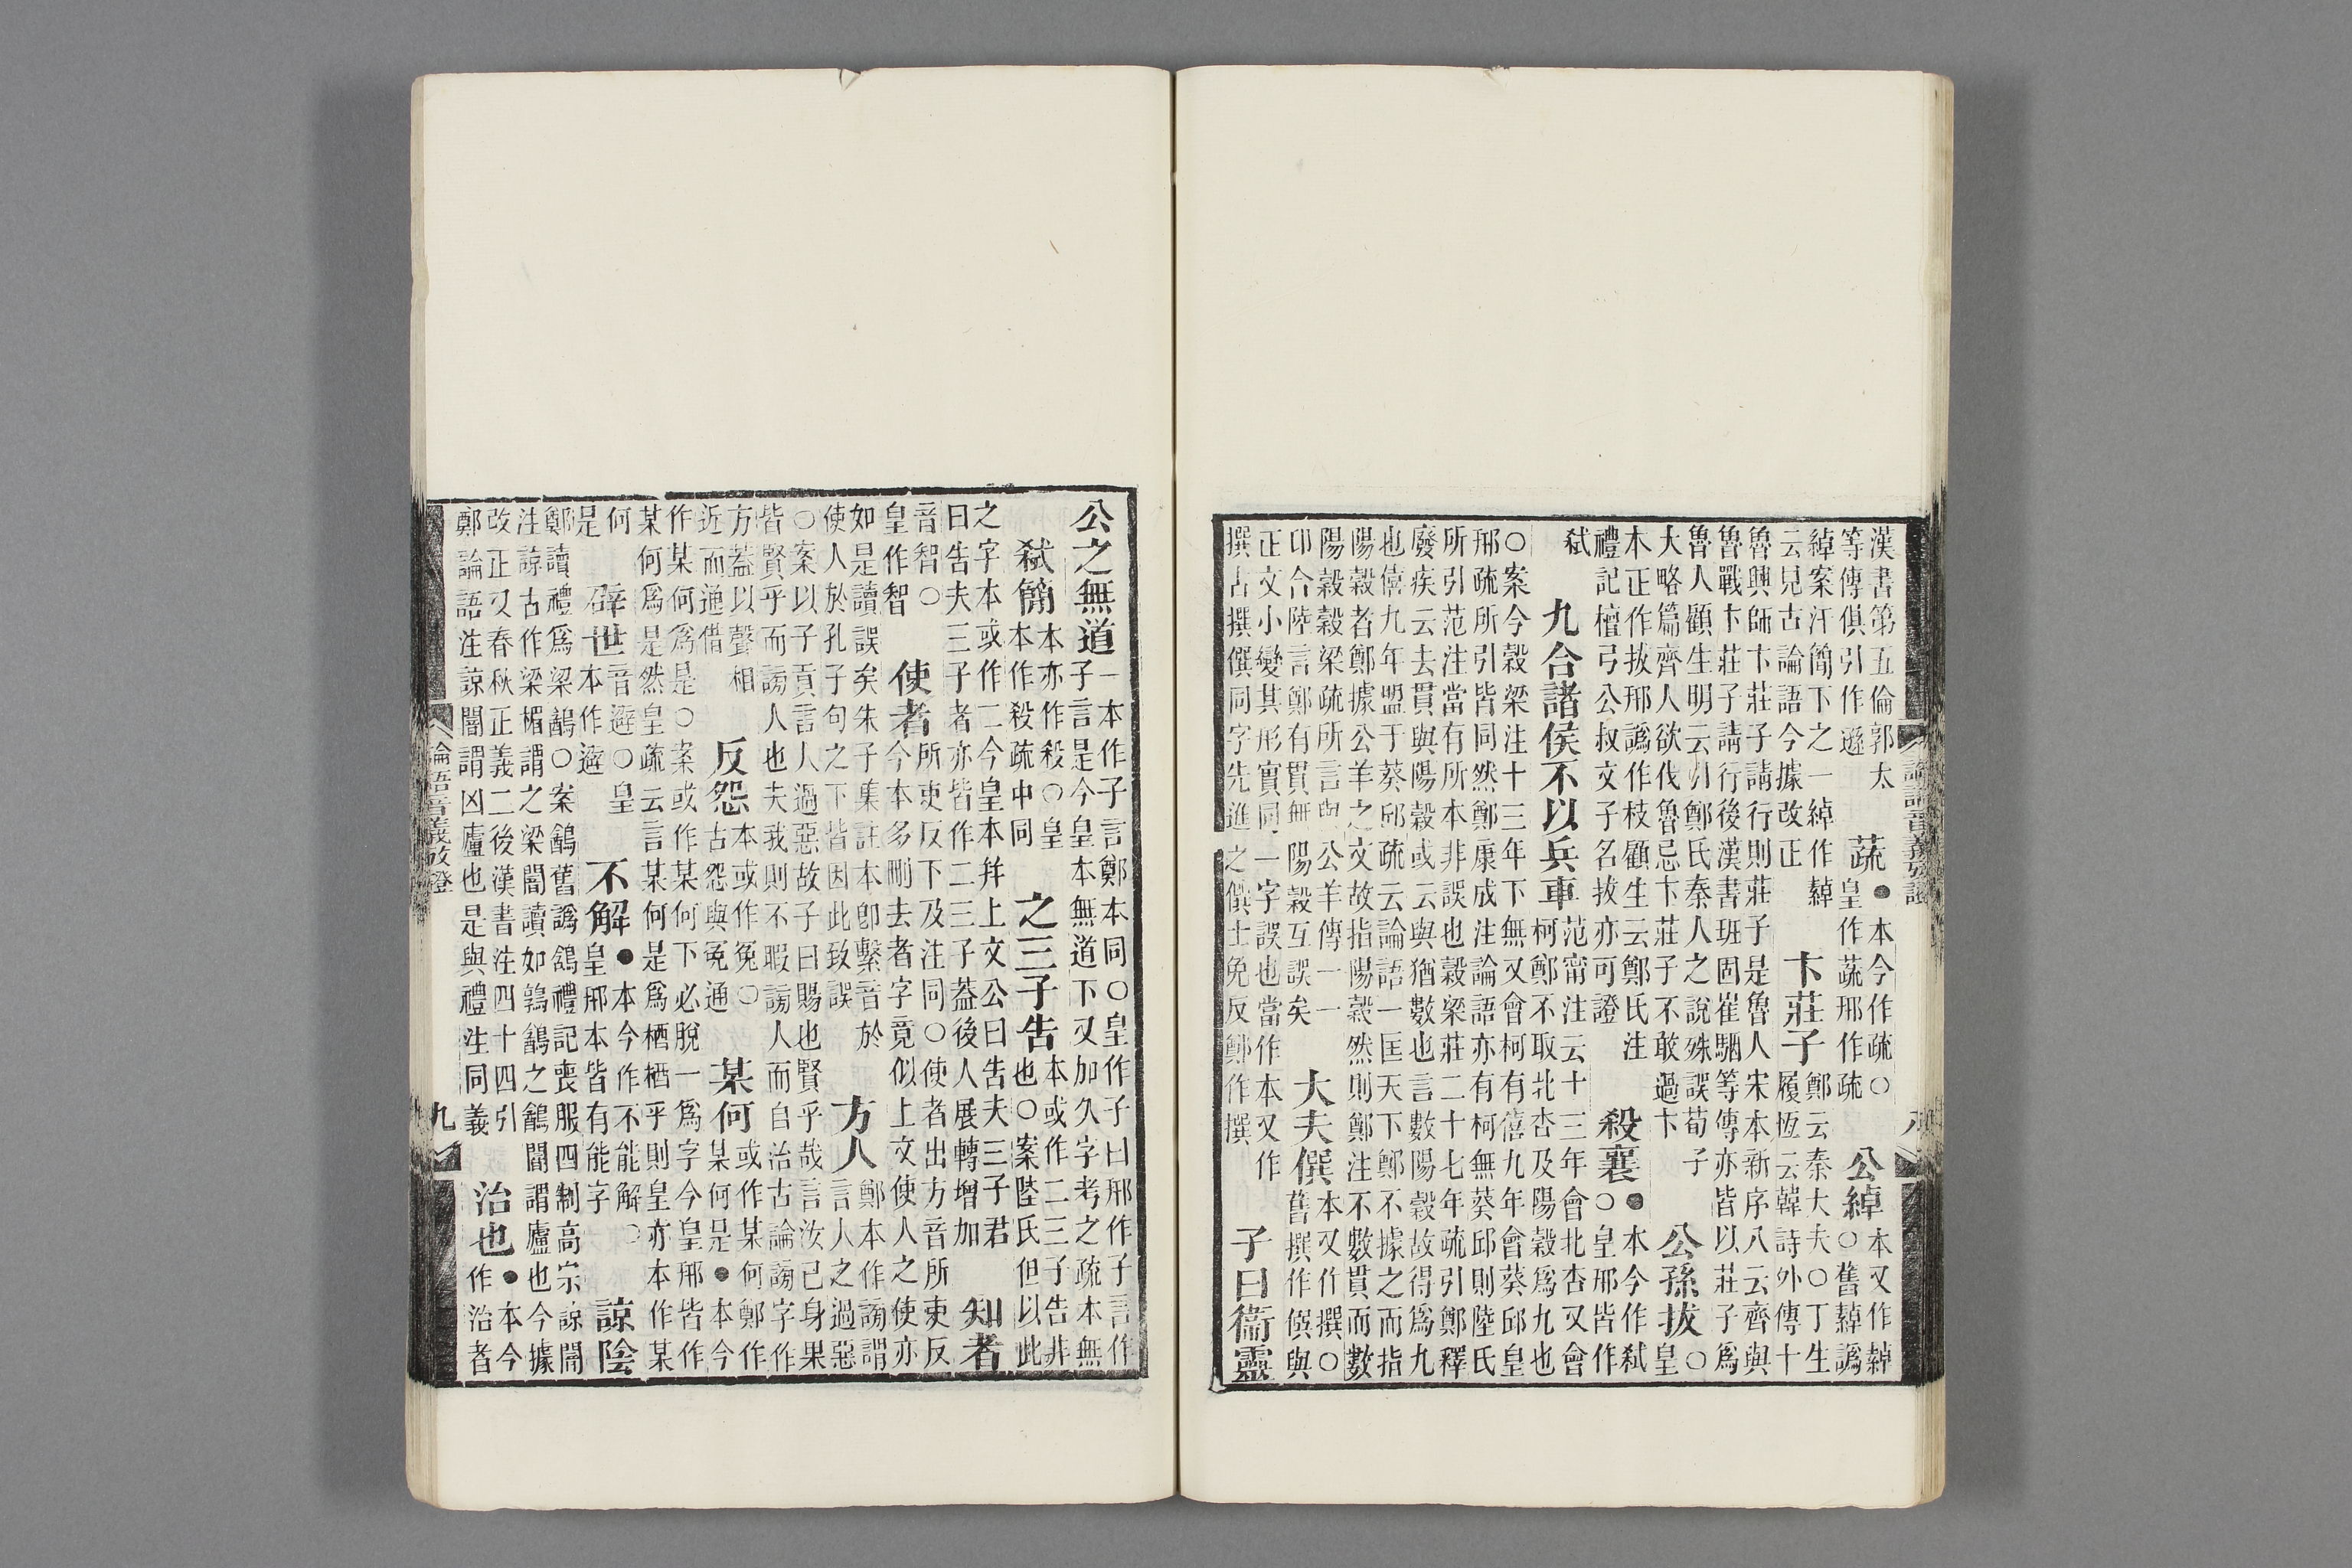 漢書第五倫郭太
等傳俱引作遜
蔬
●本今作疏○
皇作蔬邢作疏
公綽
本又作繛
○舊繛譌
綽案汗簡下之一綽作繛
云見古論語今據改正
卞莊子
鄭云秦大夫○丁生
履恆云韓詩外傳十
魯興師卞莊子請行則莊子是魯人宋本新序八云齊與
魯戰卞莊子請行後漢書班固崔駰等傳亦皆以莊子爲
魯人顧生明云引鄭氏秦人之說殊誤荀子
大略篇齊人欲伐魯忌卞莊子不敢過卞
公孫拔
○
皇
本正作拔邢譌作枝顧生云鄭氏注
禮記檀弓公叔文子名拔亦可證
殺襄
●本今作弒
○皇邢皆作
弒
九合諸侯不以兵車
范甯注云十三年會北杏又會
柯鄭不取北杏及陽穀爲九也
○案今穀梁注十三年下無又會柯有僖九年會葵邱皇
邢疏所引皆同然鄭康成注論語亦有柯無葵邱則陸氏
所引范注當有所本非誤也穀梁莊二十七年疏引鄭釋
廢疾云去貫與陽穀或云與猶數也言數陽穀故得爲九
也僖九年盟于葵邱疏云論語一匡天下鄭不據之而指
陽穀者鄭據公羊之文故指陽穀然則鄭注不數貫而數
陽穀穀梁疏所言與公羊傳一一
卬合陸言鄭有貫無陽穀互誤矣
大夫僎
本又作撰○
舊撰作僎與
正文小變其形實同一字誤也當作本又作
撰古撰僎同字先進之僎士免反鄭作撰
子曰衞靈
公之無道
一本作子言鄭本同○皇作子曰邢作子言作
子言是今皇本無道下又加久字考之疏本無
弒簡
本亦作殺○皇
本作殺疏中同
之三子告
本或作二三子告非
也○案陸氏但以此
之字本或作二今皇本幷上文公曰告夫三子君
曰告夫三子者亦皆作二三子蓋後人展轉增加
知者
音智○
皇作智
使者
所吏反下及注同○使者出方音所吏反
今本多刪去者字竟似上文使人之使亦
如是讀誤矣朱子集註本卽繫音於
使人於孔子句之下皆因此致誤
方人
鄭本作謗謂
言人之過惡
○案以子貢言人過惡故子曰賜也賢乎哉言汝己身果
皆賢乎而謗人也夫我則不暇謗人而自治古論謗字作
方蓋以聲相
近而通借
反怨
本或作冤○
古怨與冤通
某何
或作某何鄭作
某何是●本今
作某何爲是○案或作某何下必脫一爲字今皇邢皆作
某何爲是然皇疏云言某何是爲栖栖乎則皇亦本作某
何
是
辟世
音避○皇
本作避
不解
●本今作不能解○
皇邢本皆有能字
諒陰
鄭讀禮爲梁鵪○案鵪舊譌鴿禮記喪服四制高宗諒闇
注諒古作梁楣謂之梁闇讀如鶉鵪之鵪闇謂廬也今據
改正又春秋正義二後漢書注四十四引
鄭論語注諒闇謂凶廬也是與禮注同義
治也
●本今
作治者
論語音義攷證
九